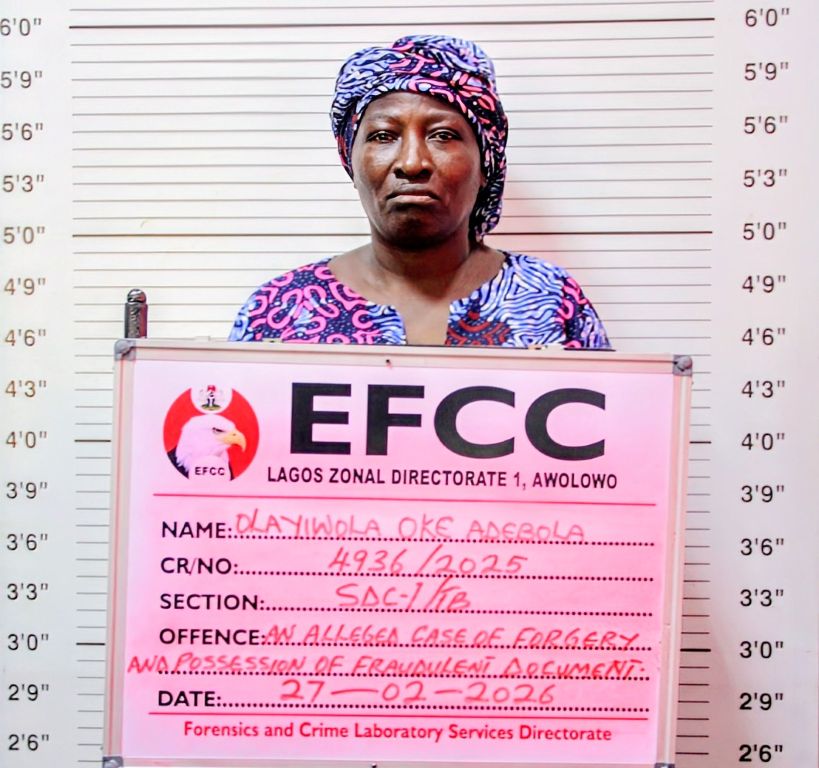 6'0"
5'9"
5'6"
5'3"
5'0"
4'9"
4'6"
4'3"
4'0"
3'9"
3'6"
3'3"
3'0"
2'9"
2'6"
6'0"
5'9"
5'6"
5'3"
5'0"
4'9"
4'6"
4'3"
4'0"
3'9"
3'6"
3'3"
3'0"
2'9"
2'6"
EFCC
EFCC
LAGOS ZONAL DIRECTORATE 1, AWOLOWO
NAME: OLAYIWOLA OKE ADEBOLA
CR/NO: 4936/2025
SECTION: SDC-1/TB
OFFENCE: AN ALLEGED CASE OF FORGERY
AND POSSESSION OF FRAUDULENT DOCUMENT.
DATE: 27-02-2026
Forensics and Crime Laboratory Services Directorate